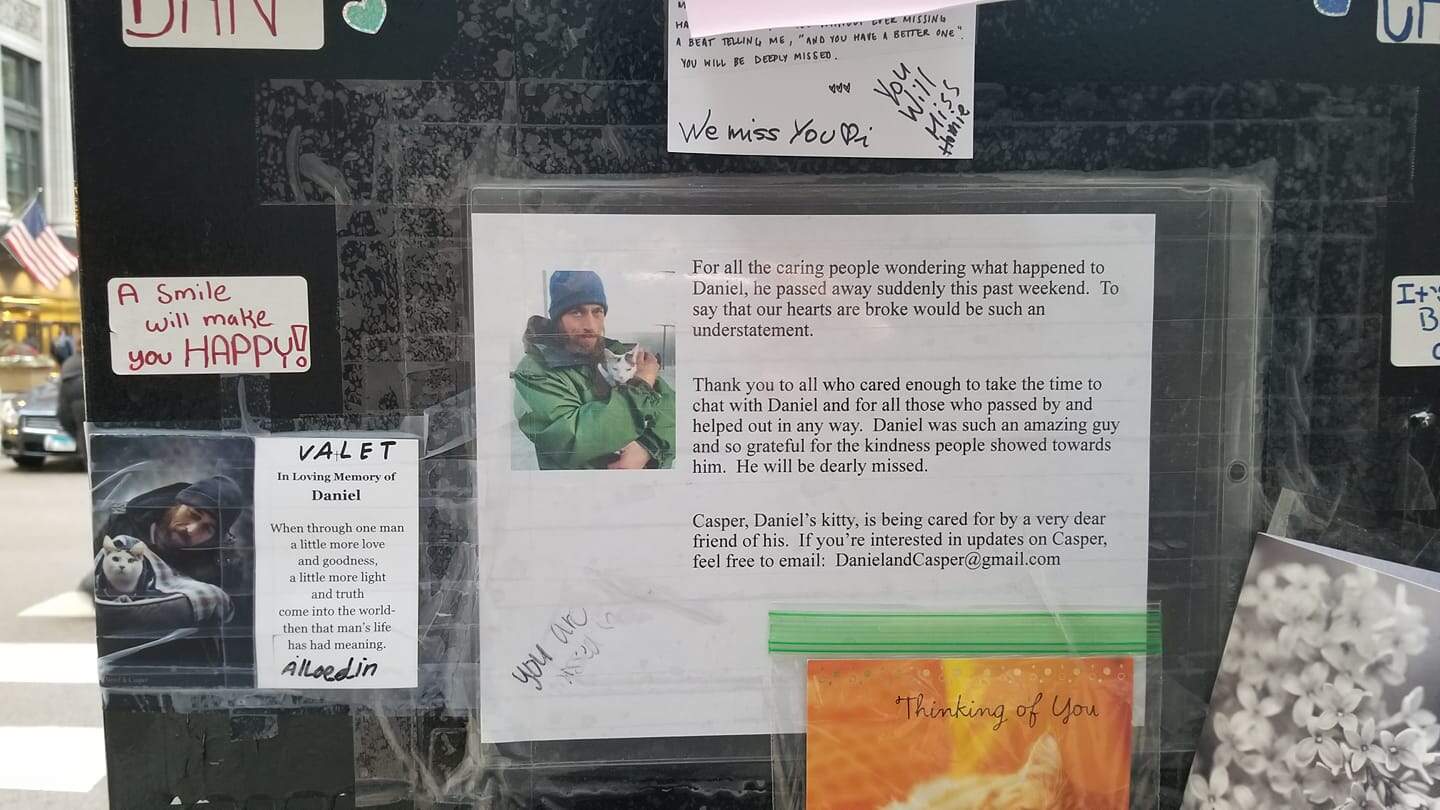 DAN
A BEAT TELLING ME, "AND YOU HAVE A BETTER ONE".
YOU WILL BE DEEPLY MISSED.
We miss You
You
Will
Miss
Homie
A Smile
will make
you HAPPY!
VALET
In Loving Memory of
Daniel
When through one man
a little more love
and goodness,
a little more light
and truth
come into the world-
then that man's life
has had meaning.
For all the caring people wondering what happened to
Daniel, he passed away suddenly this past weekend. To
say that our hearts are broke would be such an
understatement.
Thank you to all who cared enough to take the time to
chat with Daniel and for all those who passed by and
helped out in any way. Daniel was such an amazing guy
and so grateful for the kindness people showed towards
him. He will be dearly missed.
Casper, Daniel's kitty, is being cared for by a very dear
friend of his. If you're interested in updates on Casper,
feel free to email: DanielandCasper@gmail.com
you are
Thinking of You